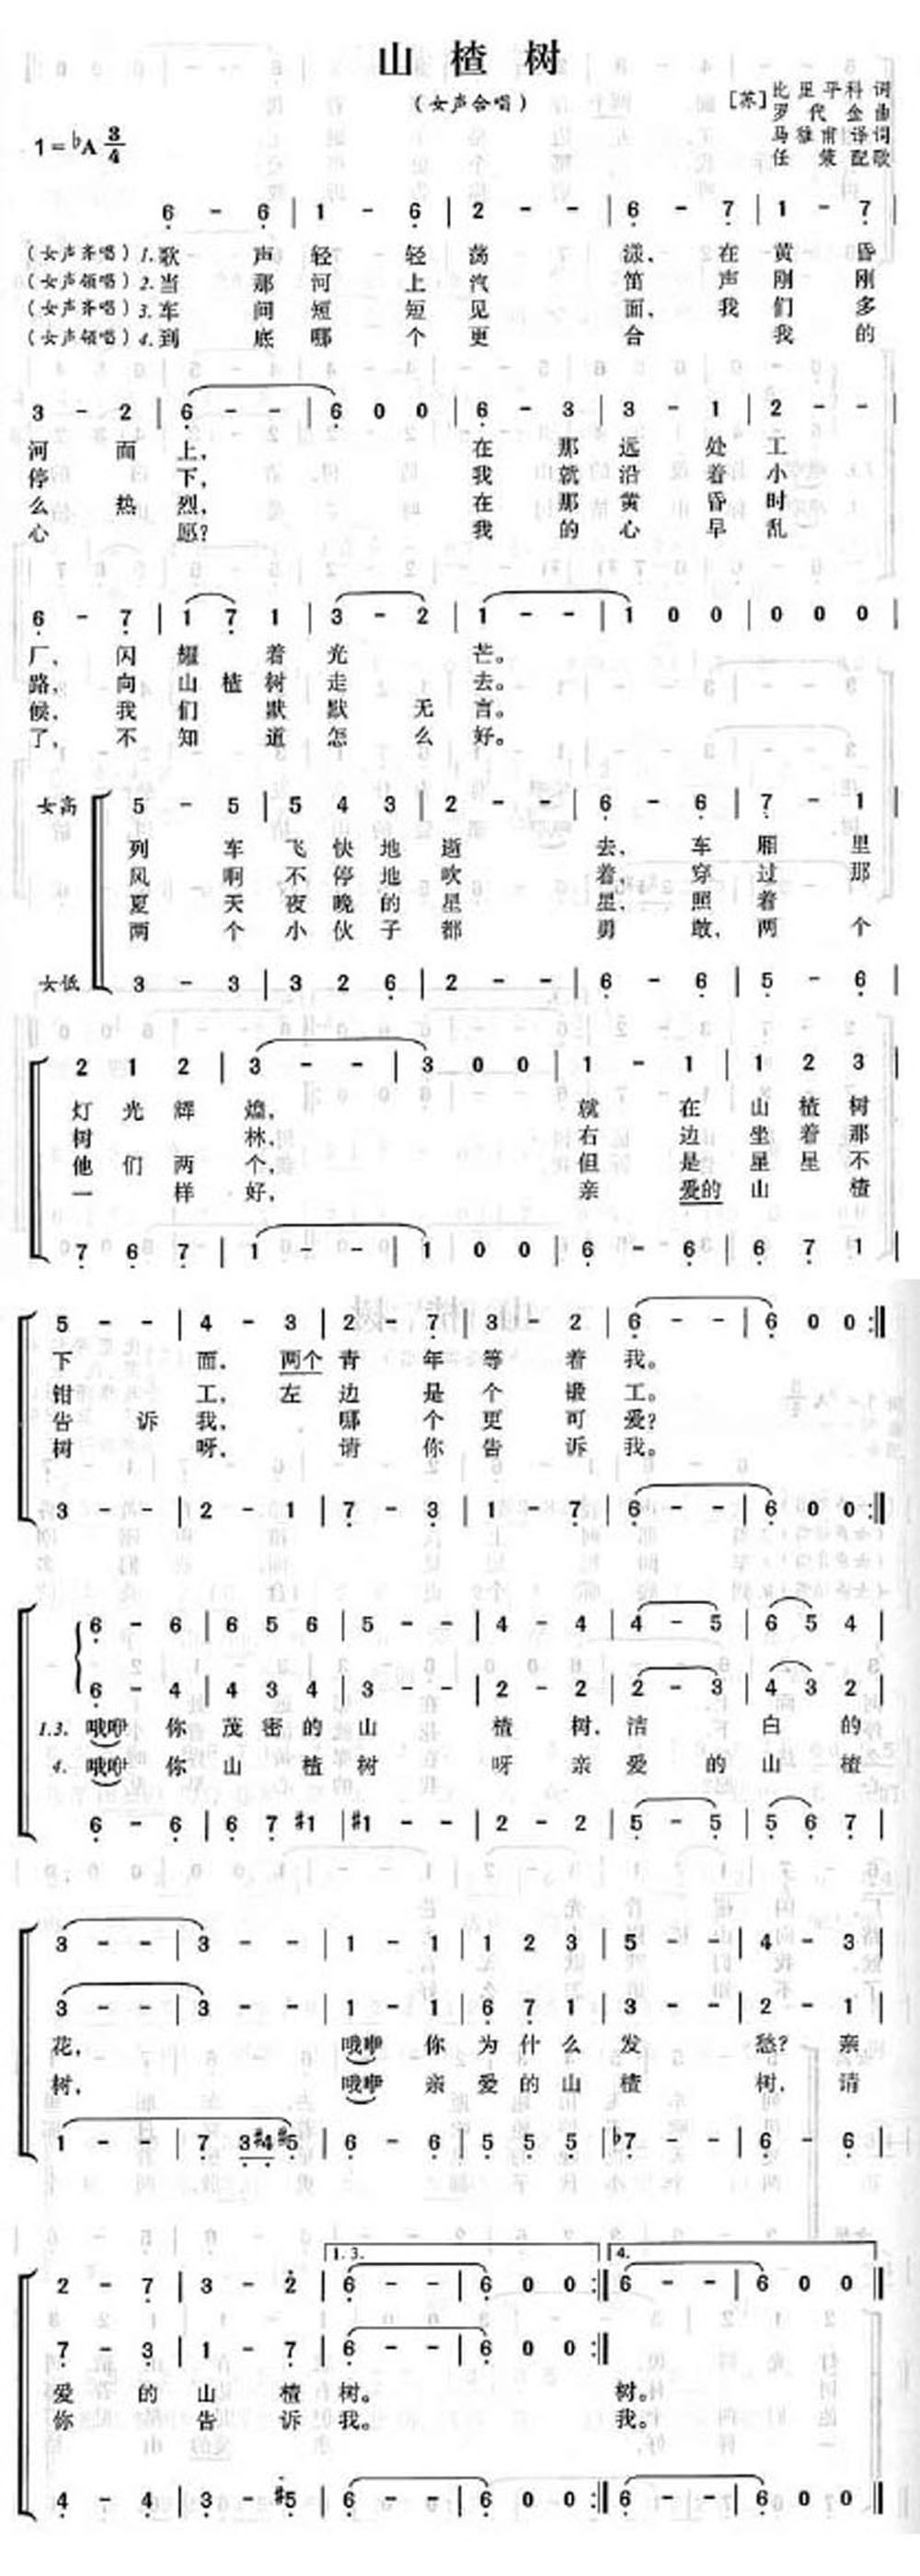 山楂树
（女声合唱）
[苏]比里平科词
罗代金曲
马雅甫译词
任策配歌
1=♭A 3/4
6̣ - 6̣ | 1 - 6̣ | 2 - - | 6̣ - 7̣ | 1 - 7̣ |
（女声齐唱）1.歌声轻轻荡漾，在黄昏
（女声领唱）2.当那河上汽笛声刚刚
（女声齐唱）3.车间短短见面，我们多
（女声领唱）4.到底哪个更合我的
3 - 2 | 6̣ - - | 6̣ 0 0 | 6̣ - 3 | 3 - 1 | 2 - - |
河面上，在那远处工
停下，我就沿着小
么热烈，在那黄昏时
心愿？我的心早乱
6̣ - 7̣ | 1 7̣ 1 | 3 - 2 | 1 - - | 1 0 0 | 0 0 0 |
厂，闪耀着光芒。
路，向山楂树走去。
候，我们默默无言。
了，不知道怎么好。
女高 5 - 5 | 5 4 3 | 2 - - | 6̣ - 6̣ | 7̣ - 1 |
列车飞快地逝去，车厢里
风啊不停地吹着，穿过那
夏天夜晚的星星，照着
两个小伙子都勇敢，两个
女低 3 - 3 | 3 2 6̣ | 2 - - | 6̣ - 6̣ | 5̣ - 6̣ |
2 1 2 | 3 - - | 3 0 0 | 1 - 1 | 1 2 3 |
灯光辉煌，就在山楂树
树林，右边坐着那
他们两个，但是星星不
一样好，亲爱的山楂
7̣ 6̣ 7̣ | 1 - - | 1 0 0 | 6̣ - 6̣ | 6̣ 7̣ 1 |
5 - - | 4 - 3 | 2 - 7̣ | 3 - 2 | 6̣ - - | 6̣ 0 0 :‖
下面，两个青年等着我。
钳工，左边是个锻工。
告诉我，哪个更可爱？
树呀，请你告诉我。
3 - - | 2 - 1 | 7̣ - 3̣ | 1 - 7̣ | 6̣ - - | 6̣ 0 0 :‖
6̣ - 6 | 6 5 6 | 5 - - | 4 - 4 | 4 - 5 | 6 5 4 |
6̣ - 4 | 4 3 4 | 3 - - | 2 - 2 | 2 - 3 | 4 3 2 |
1.3. 哦咿你茂密的山楂树，洁白的
4. 哦咿你山楂树呀亲爱的山楂
6̣ - 6̣ | 6̣ 7̣ #1 | #1 - - | 2 - 2 | 5̣ - 5̣ | 5̣ 6̣ 7̣ |
3 - - | 3 - - | 1 - 1 | 1 2 3 | 5 - - | 4 - 3 |
3 - - | 3 - - | 1 - 1 | 6̣ 7̣ 1 | 3 - - | 2 - 1 |
花，哦咿你为什么发愁？亲
树，哦咿亲爱的山楂树，请
1 - - | 7̣ 3̣ #4̣ #5̣ | 6̣ - 6̣ | 5̣ 5̣ 5̣ | ♭7̣ - - | 6̣ - 6̣ |
1.3. 4.
2 - 7̣ | 3 - 2̇ | 6̣ - - | 6̣ 0 0 :‖ 6̣ - - | 6̣ 0 0 ‖
7̣ - 3̣ | 1 - 7̣ | 6̣ - - | 6̣ 0 0 :‖
爱的山楂树。树。
你告诉我。我。
4̣ - 4̣ | 3̣ - #5̣ | 6̣ - - | 6̣ 0 0 :‖ 6̣ - - | 6̣ 0 0 ‖